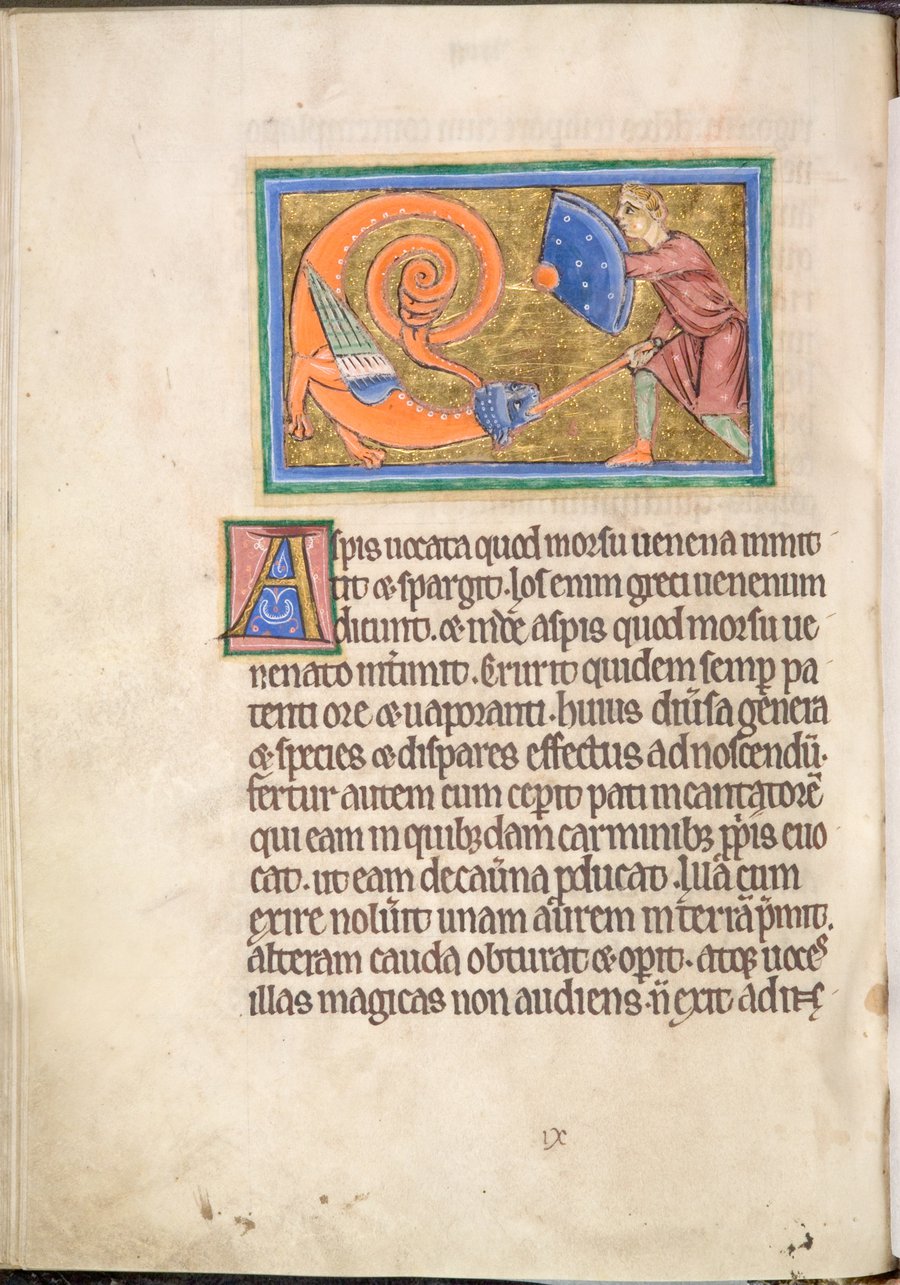 Aspis uocata quod morsu uenena inmit
tit & spargit. Ios enim greci uenenum
dicunt. & in̄de aspis quod morsu ue
nenato int̄imit. Currit quidem semp̱ pa
tenti ore & uaporanti. huius diu̾sa genera
& species & dispares effectus ad noscendū.
fertur autem cum cep̱it pati incantatorē
qui eam in quibꝫdam carminibꝫ ꝓpiis euo
cat. ut eam de cau̾na ꝓducat. Illa cum
exire nolu̾it unam aurem in terrā p̱mit.
alteram cauda obturat & op̱it. atqꝫ uoces
illas magicas non audiens. n̄ exit ad in
ıx